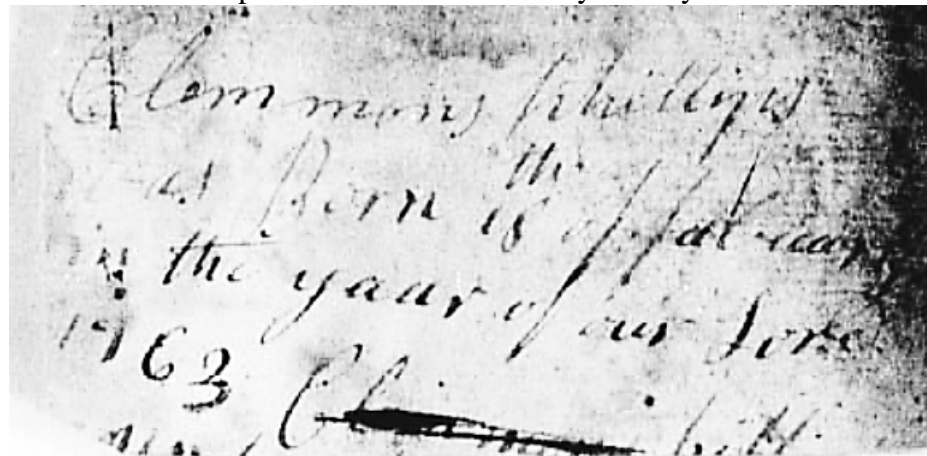 Clemmons Phillips
was Born 18th of fabuary
in the yaaur of our Lord
1763